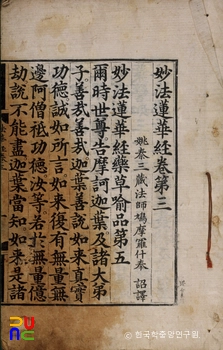 妙法蓮華經卷第三
姚秦三藏法師鳩摩羅什奉 詔譯
妙法蓮華經藥草喻品第五
爾時世尊告摩訶迦葉及諸大弟
子善哉善哉迦葉善說如來真實
功德誠如所言如來復有無量無
邊阿僧祇功德汝等若於無量億
劫說不能盡迦葉當知如來是諸
한국학중앙연구원